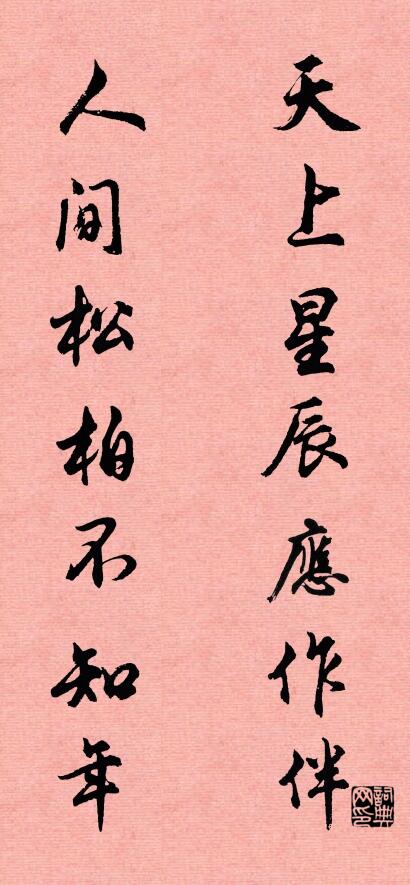 天上星辰應作伴
人间松柏不知年
詞典网印